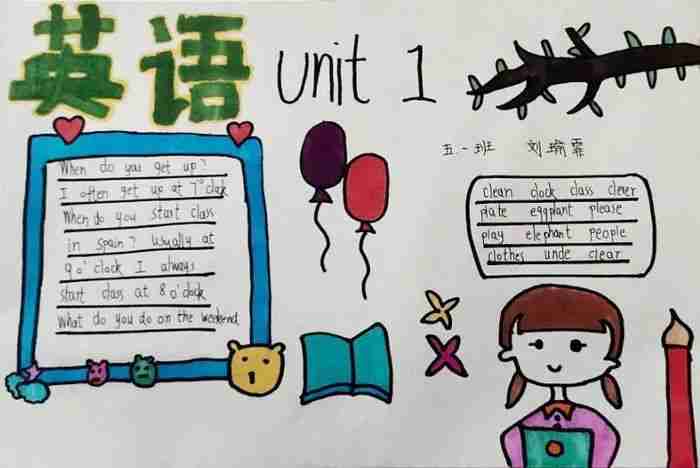 英语 Unit 1
五一班 刘瑜霏
When do you get up?
I often get up at 7 o'clak
When do you start class
in spain? Usually at
9 o'clock I always
start class at 8 o'clock
What do you do on the weekend
clean clock class clever
plate eggplant please
play elephant people
clothes unde clear